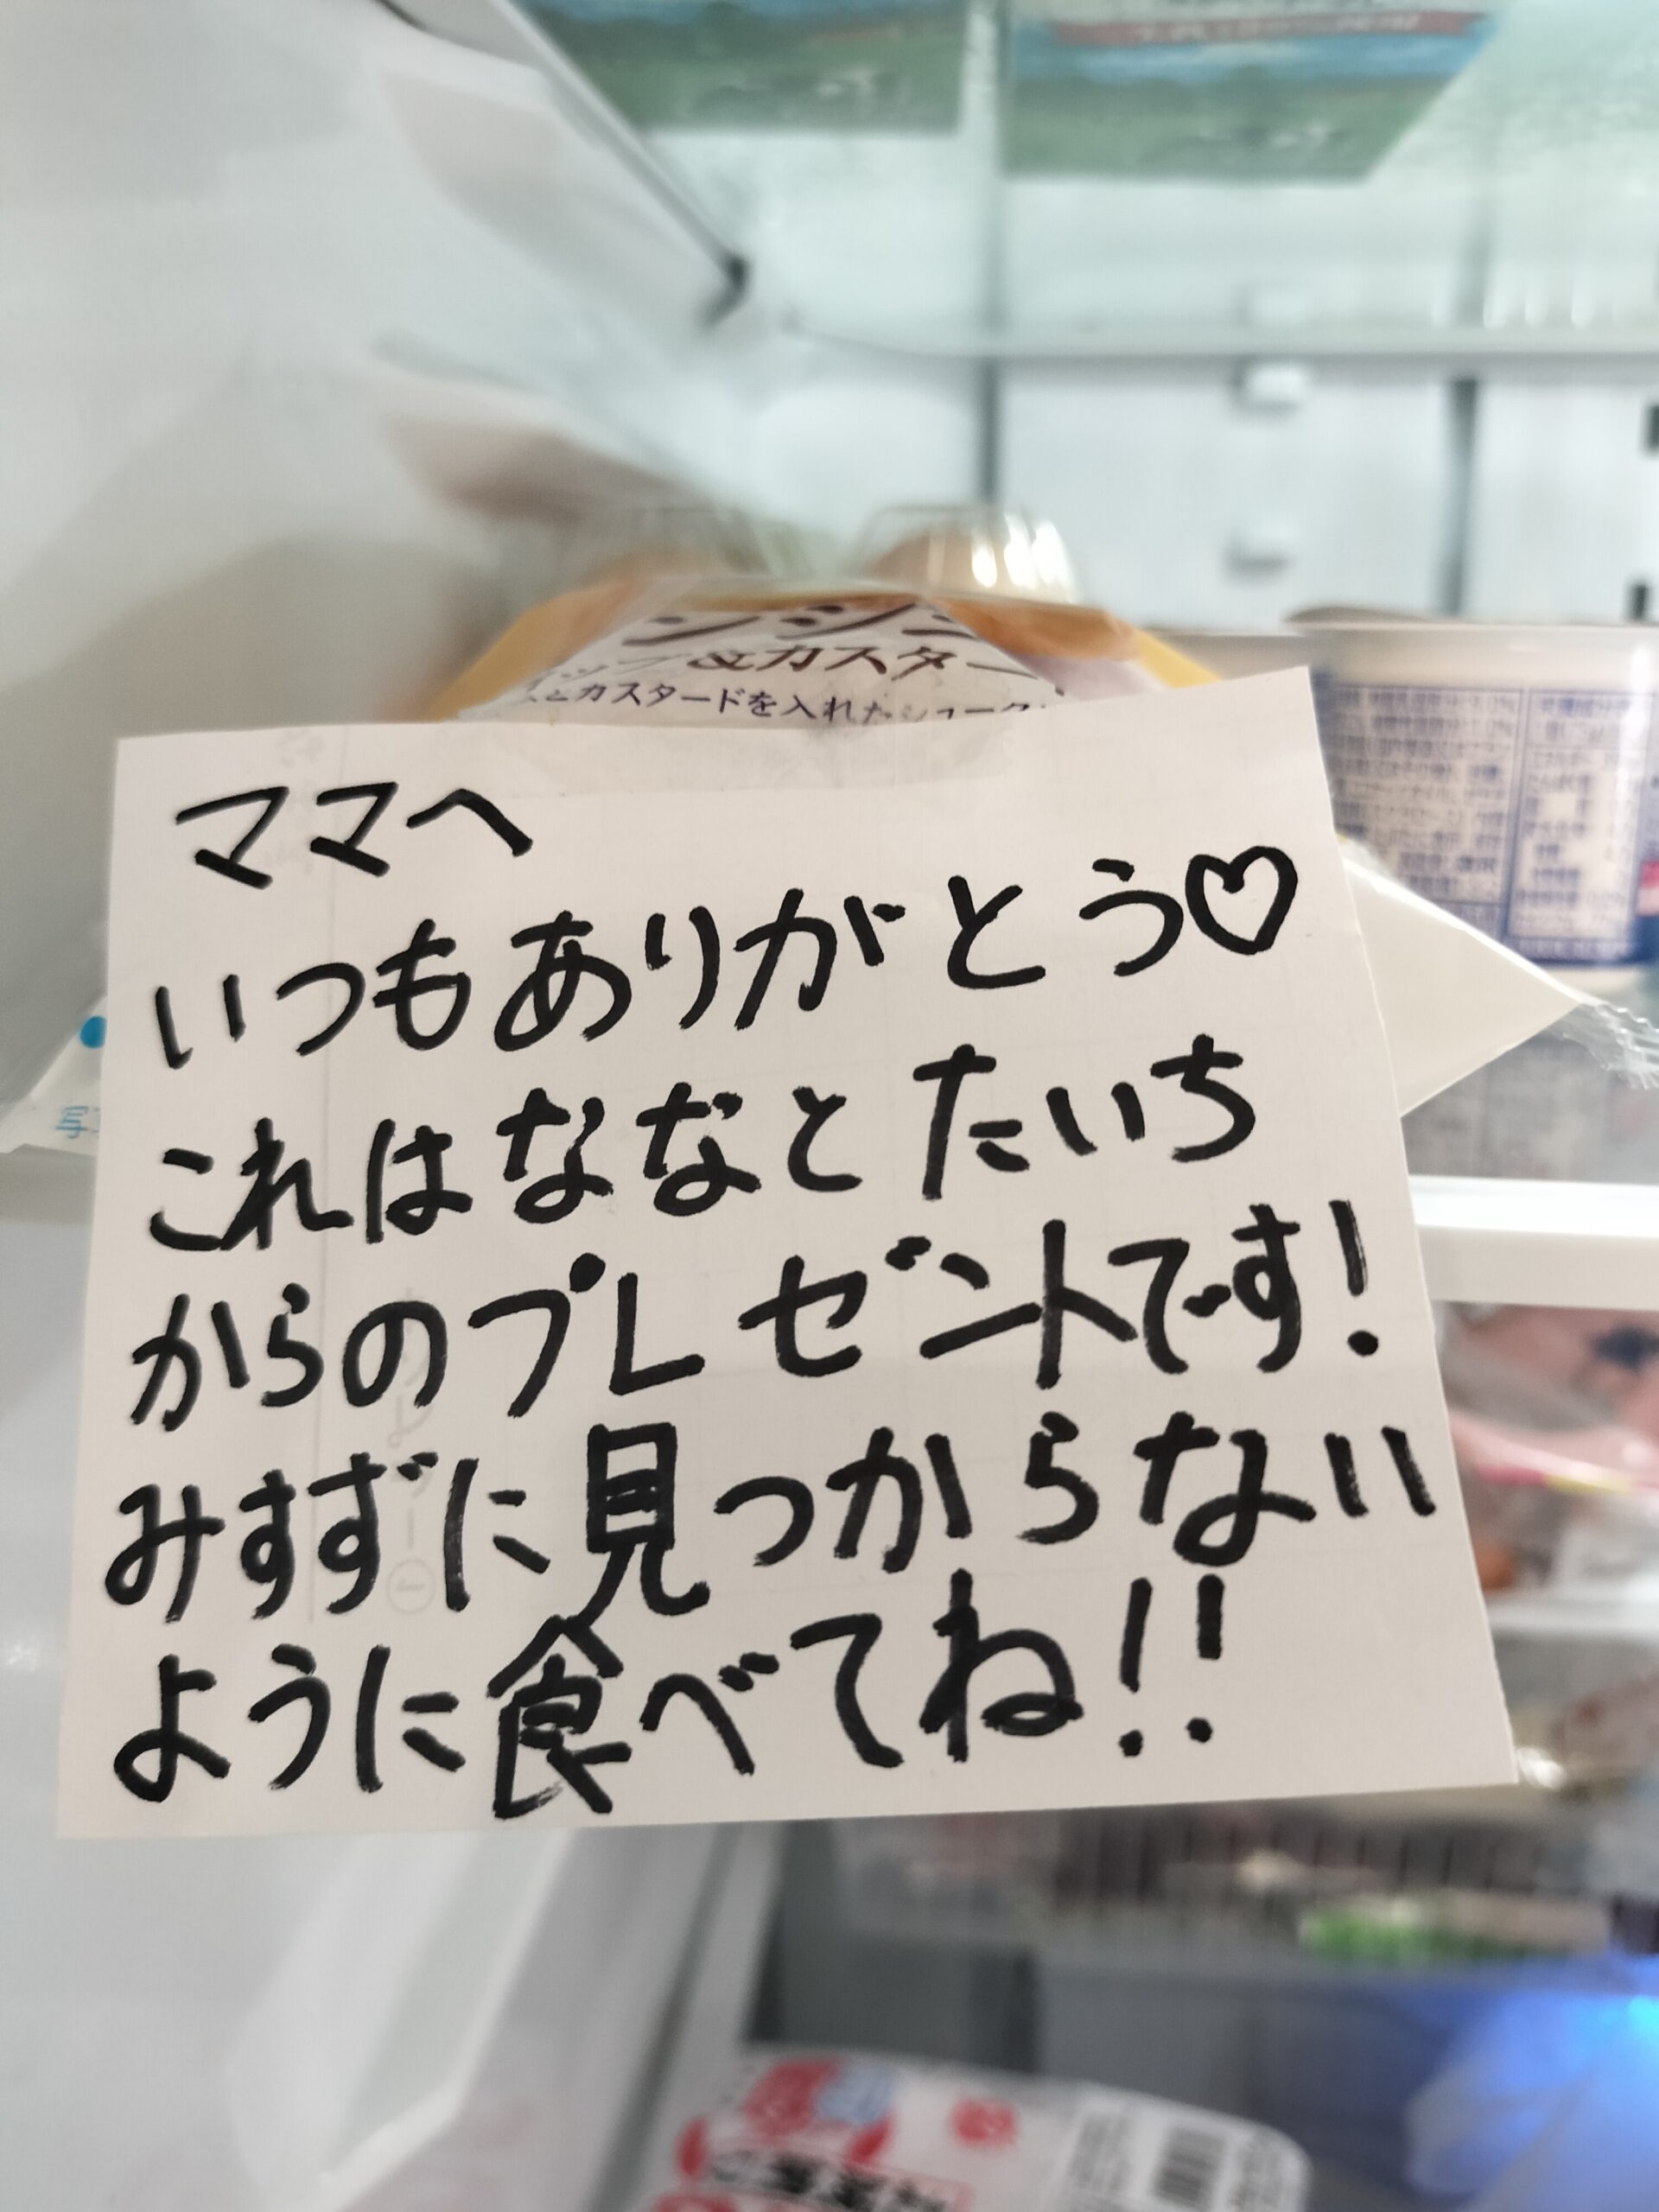 &カスター
とカスタードを入れたシュークリ
ママへ
いつもありがとう♡
これはななとたいち
からのプレゼントです!
みすずに見つからない
ように食べてね!!
写